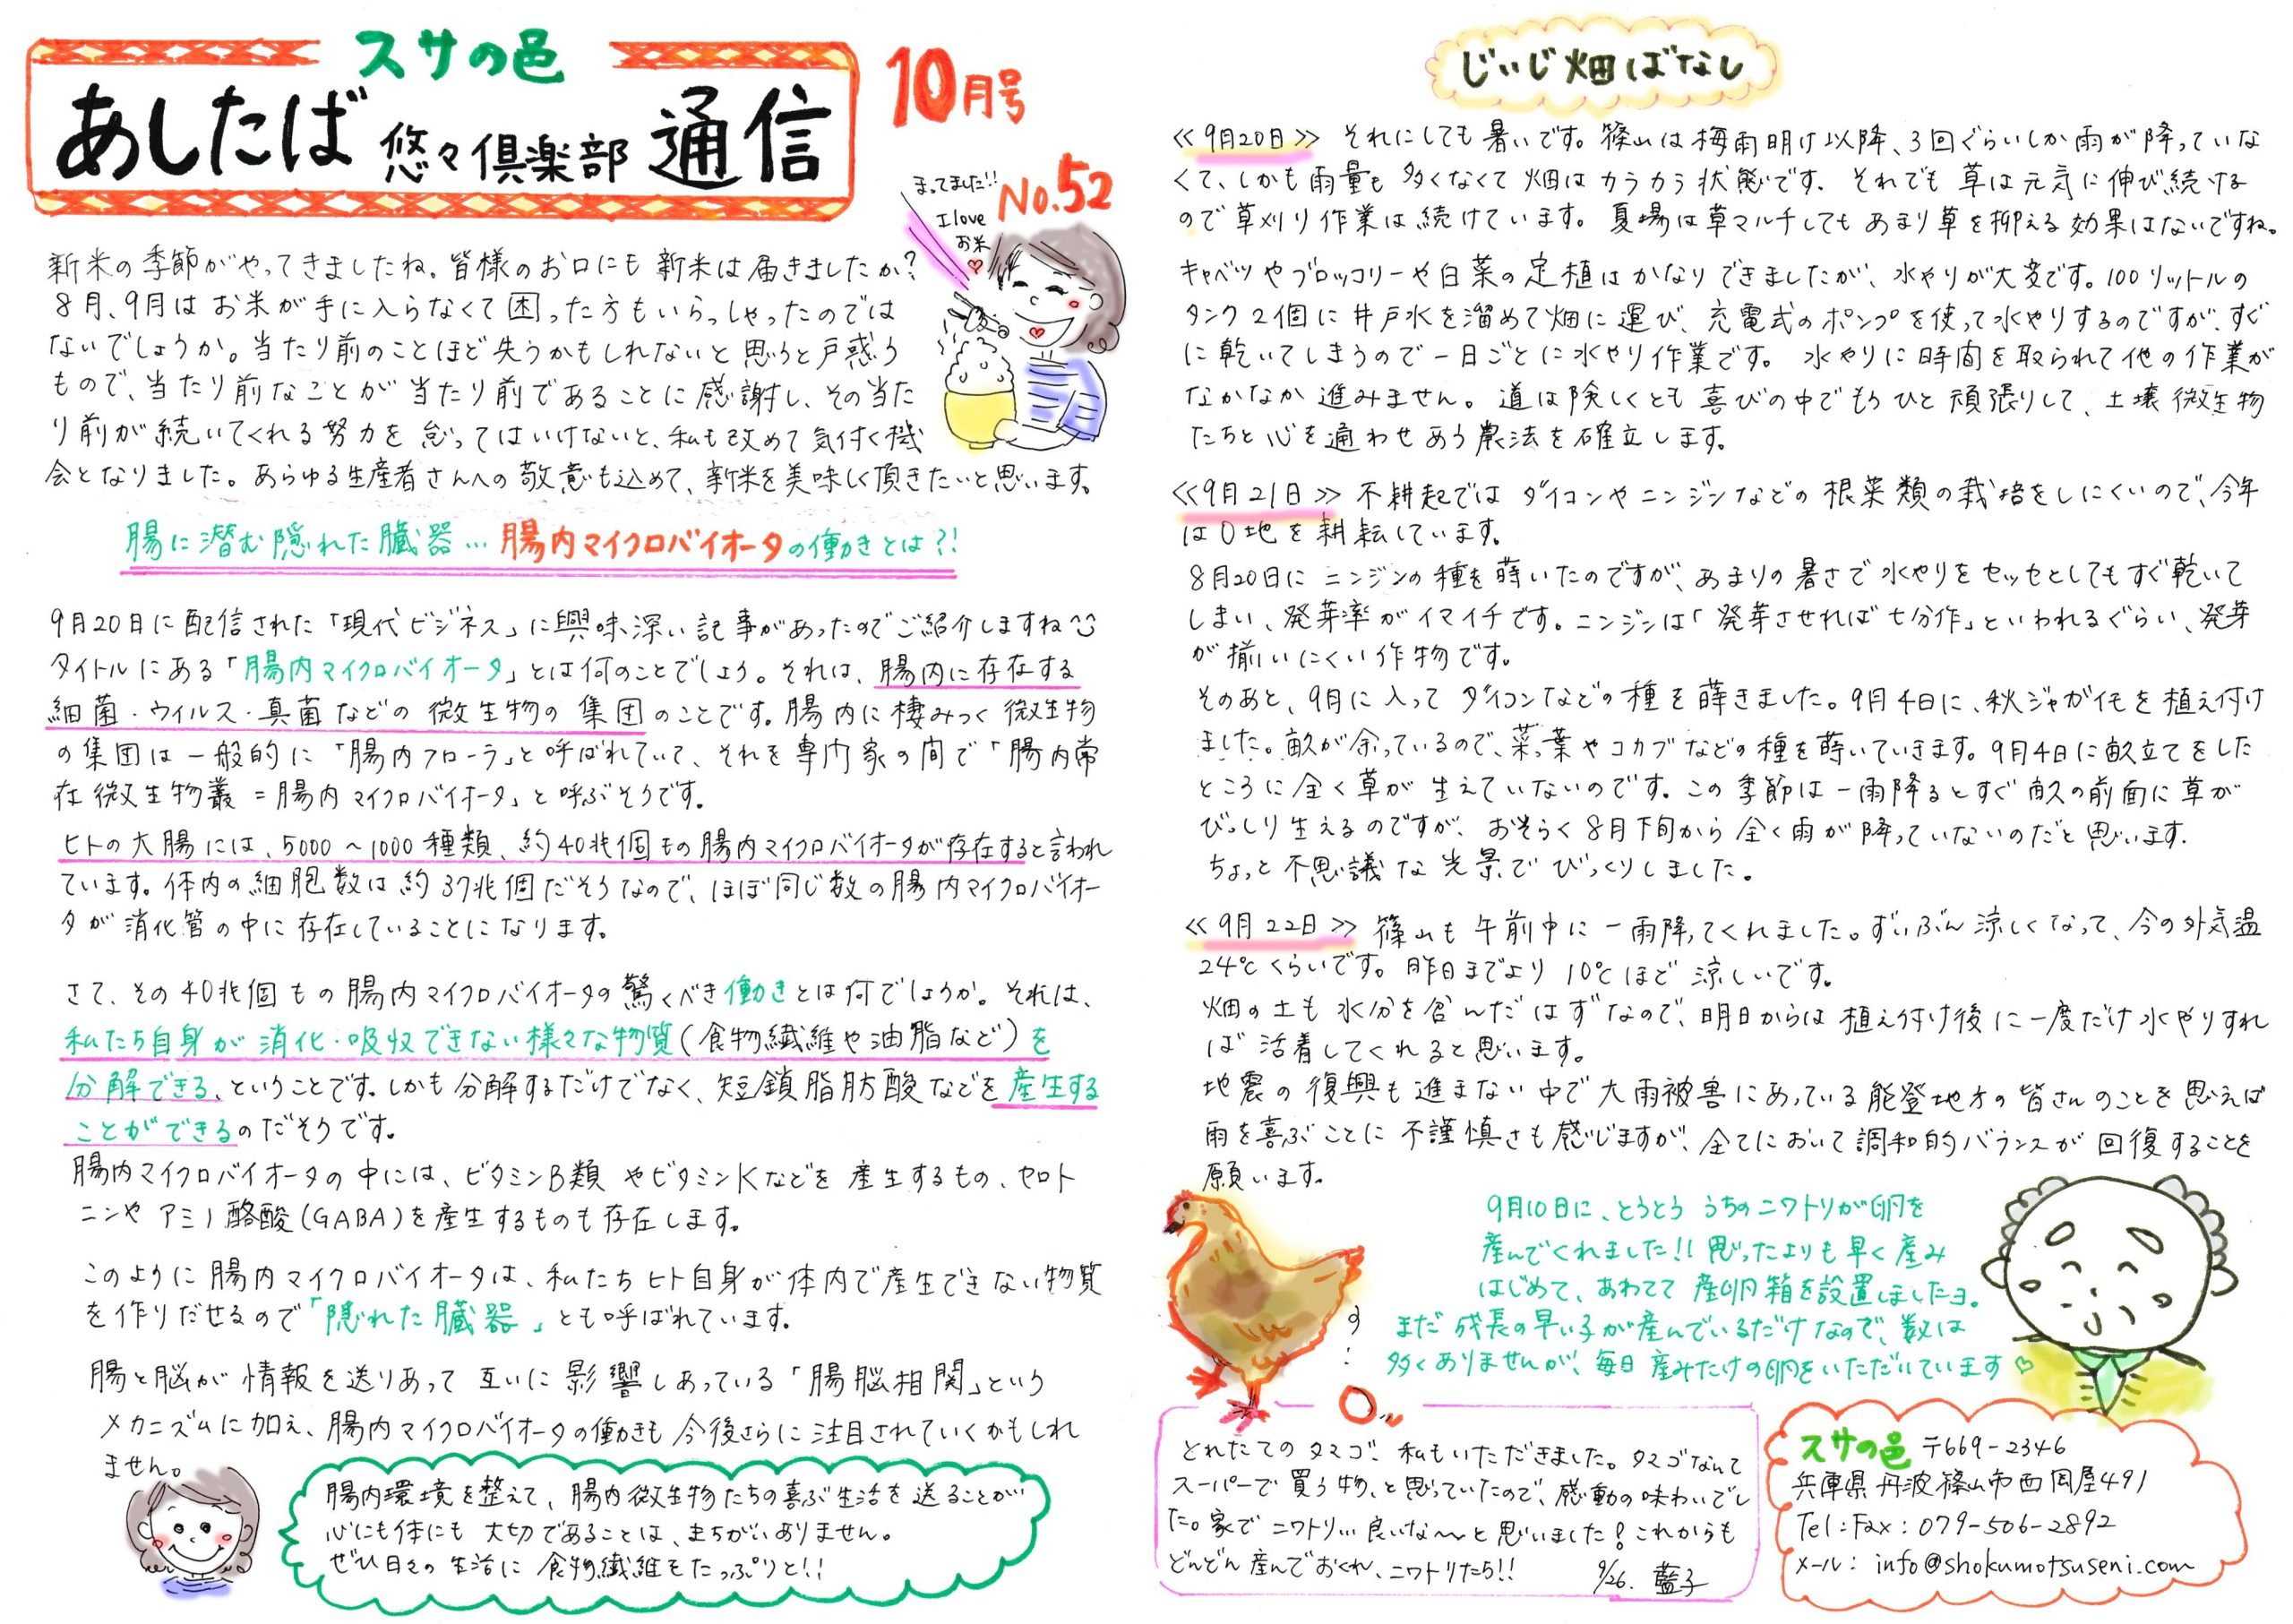 スサの邑
あしたば 悠々倶楽部 通信
10月号
No.52
まってました!!
I love
お米
新米の季節がやってきましたね。皆様のお口にも新米は届きましたか?
8月、9月はお米が手に入らなくて困った方もいらっしゃったのでは
ないでしょうか。当たり前のことほど失うかもしれないと思うと戸惑う
もので、当たり前なことが当たり前であることに感謝し、その当た
り前が続いてくれる努力を怠ってはいけないと、私も改めて気付く機
会となりました。あらゆる生産者さんへの敬意も込めて、新米を美味しく頂きたいと思います。
腸に潜む隠れた臓器…腸内マイクロバイオータの働きとは?!
9月20日に配信された「現代ビジネス」に興味深い記事があったのでご紹介しますね
タイトルにある「腸内マイクロバイオータ」とは何のことでしょう。それは、腸内に存在する
細菌・ウイルス・真菌などの微生物の集団のことです。腸内に棲みつく微生物
の集団は一般的に「腸内フローラ」と呼ばれていて、それを専門家の間で「腸内常
在微生物叢=腸内マイクロバイオータ」と呼ぶそうです。
ヒトの大腸には、5000~1000種類、約40兆個もの腸内マイクロバイオータが存在すると言われ
ています。体内の細胞数は約37兆個だそうなので、ほぼ同じ数の腸内マイクロバイオー
タが消化管の中に存在していることになります。
さて、その40兆個もの腸内マイクロバイオータの驚くべき働きとは何でしょうか。それは、
私たち自身が消化・吸収できない様々な物質(食物繊維や油脂など)を
分解できる、ということです。しかも分解するだけでなく、短鎖脂肪酸などを産生する
ことができるのだそうです。
腸内マイクロバイオータの中には、ビタミンB類やビタミンKなどを産生するもの、セロト
ニンやアミノ酪酸(GABA)を産生するものも存在します。
このように腸内マイクロバイオータは、私たちヒト自身が体内で産生できない物質
を作りだせるので「隠れた臓器」とも呼ばれています。
腸と脳が情報を送りあって互いに影響しあっている「腸脳相関」という
メカニズムに加え、腸内マイクロバイオータの働きも今後さらに注目されていくかもしれ
ません。
腸内環境を整えて、腸内微生物たちの喜ぶ生活を送ることが
心にも体にも大切であることは、まちがいありません。
ぜひ日々の生活に食物繊維をたっぷりと!!
じいじ畑ばなし
≪9月20日≫ それにしても暑いです。篠山は梅雨明け以降、3回ぐらいしか雨が降っていな
くて、しかも雨量も多くなくて畑はカラカラ状態です。それでも草は元気に伸び続ける
ので草刈り作業は続けています。夏場は草マルチしてもあまり草を抑える効果はないですね。
キャベツやブロッコリーや白菜の定植はかなりできましたが、水やりが大変です。100リットルの
タンク2個に井戸水を溜めて畑に運び、充電式のポンプを使って水やりするのですが、すぐ
に乾いてしまうので一日ごとに水やり作業です。水やりに時間を取られて他の作業が
なかなか進みません。道は険しくとも喜びの中でもうひと頑張りして、土壌微生物
たちと心を通わせあう農法を確立します。
≪9月21日≫ 不耕起ではダイコンやニンジンなどの根菜類の栽培をしにくいので、今年
は〇地を耕耘しています。
8月20日にニンジンの種を蒔いたのですが、あまりの暑さで水やりをセッセとしてもすぐ乾いて
しまい、発芽率がイマイチです。ニンジンは「発芽させれば七分作」といわれるぐらい、発芽
が揃いにくい作物です。
そのあと、9月に入ってダイコンなどの種を蒔きました。9月4日に、秋ジャガイモを植え付け
ました。畝が余っているので、菜っ葉やコカブなどの種を蒔いていきます。9月4日に畝立てをした
ところに全く草が生えていないのです。この季節は一雨降るとすぐ畝の前面に草が
びっしり生えるのですが、おそらく8月下旬から全く雨が降っていないのだと思います。
ちょっと不思議な光景でびっくりしました。
≪9月22日≫ 篠山も午前中に一雨降ってくれました。ずいぶん涼しくなって、今の外気温
24℃くらいです。昨日までより10℃ほど涼しいです。
畑の土も水分を含んだはずなので、明日からは植え付け後に一度だけ水やりすれ
ば活着してくれると思います。
地震の復興も進まない中で大雨被害にあっている能登地方の皆さんのことを思えば
雨を喜ぶことに不謹慎さも感じますが、全てにおいて調和的バランスが回復することを
願います。
9月10日に、とうとううちのニワトリが卵を
産んでくれました!!思ったよりも早く産み
はじめて、あわてて産卵箱を設置しましたヨ。
まだ成長の早い子が産んでいるだけなので、数は
多くありませんが、毎日産みたけの卵をいただいています♡
とれたてのタマゴ、私もいただきました。タマゴなんて
スーパーで買う物、と思っていたので、感動の味わいでし
た。家でニワトリ…良いな～と思いました!これからも
どんどん産んでおくれ、ニワトリたち!!
9/26. 藍子
スサの邑 〒669-2346
兵庫県丹波篠山市西岡屋491
Tel:Fax:079-506-2892
メール: info@shokumotsuseni.com